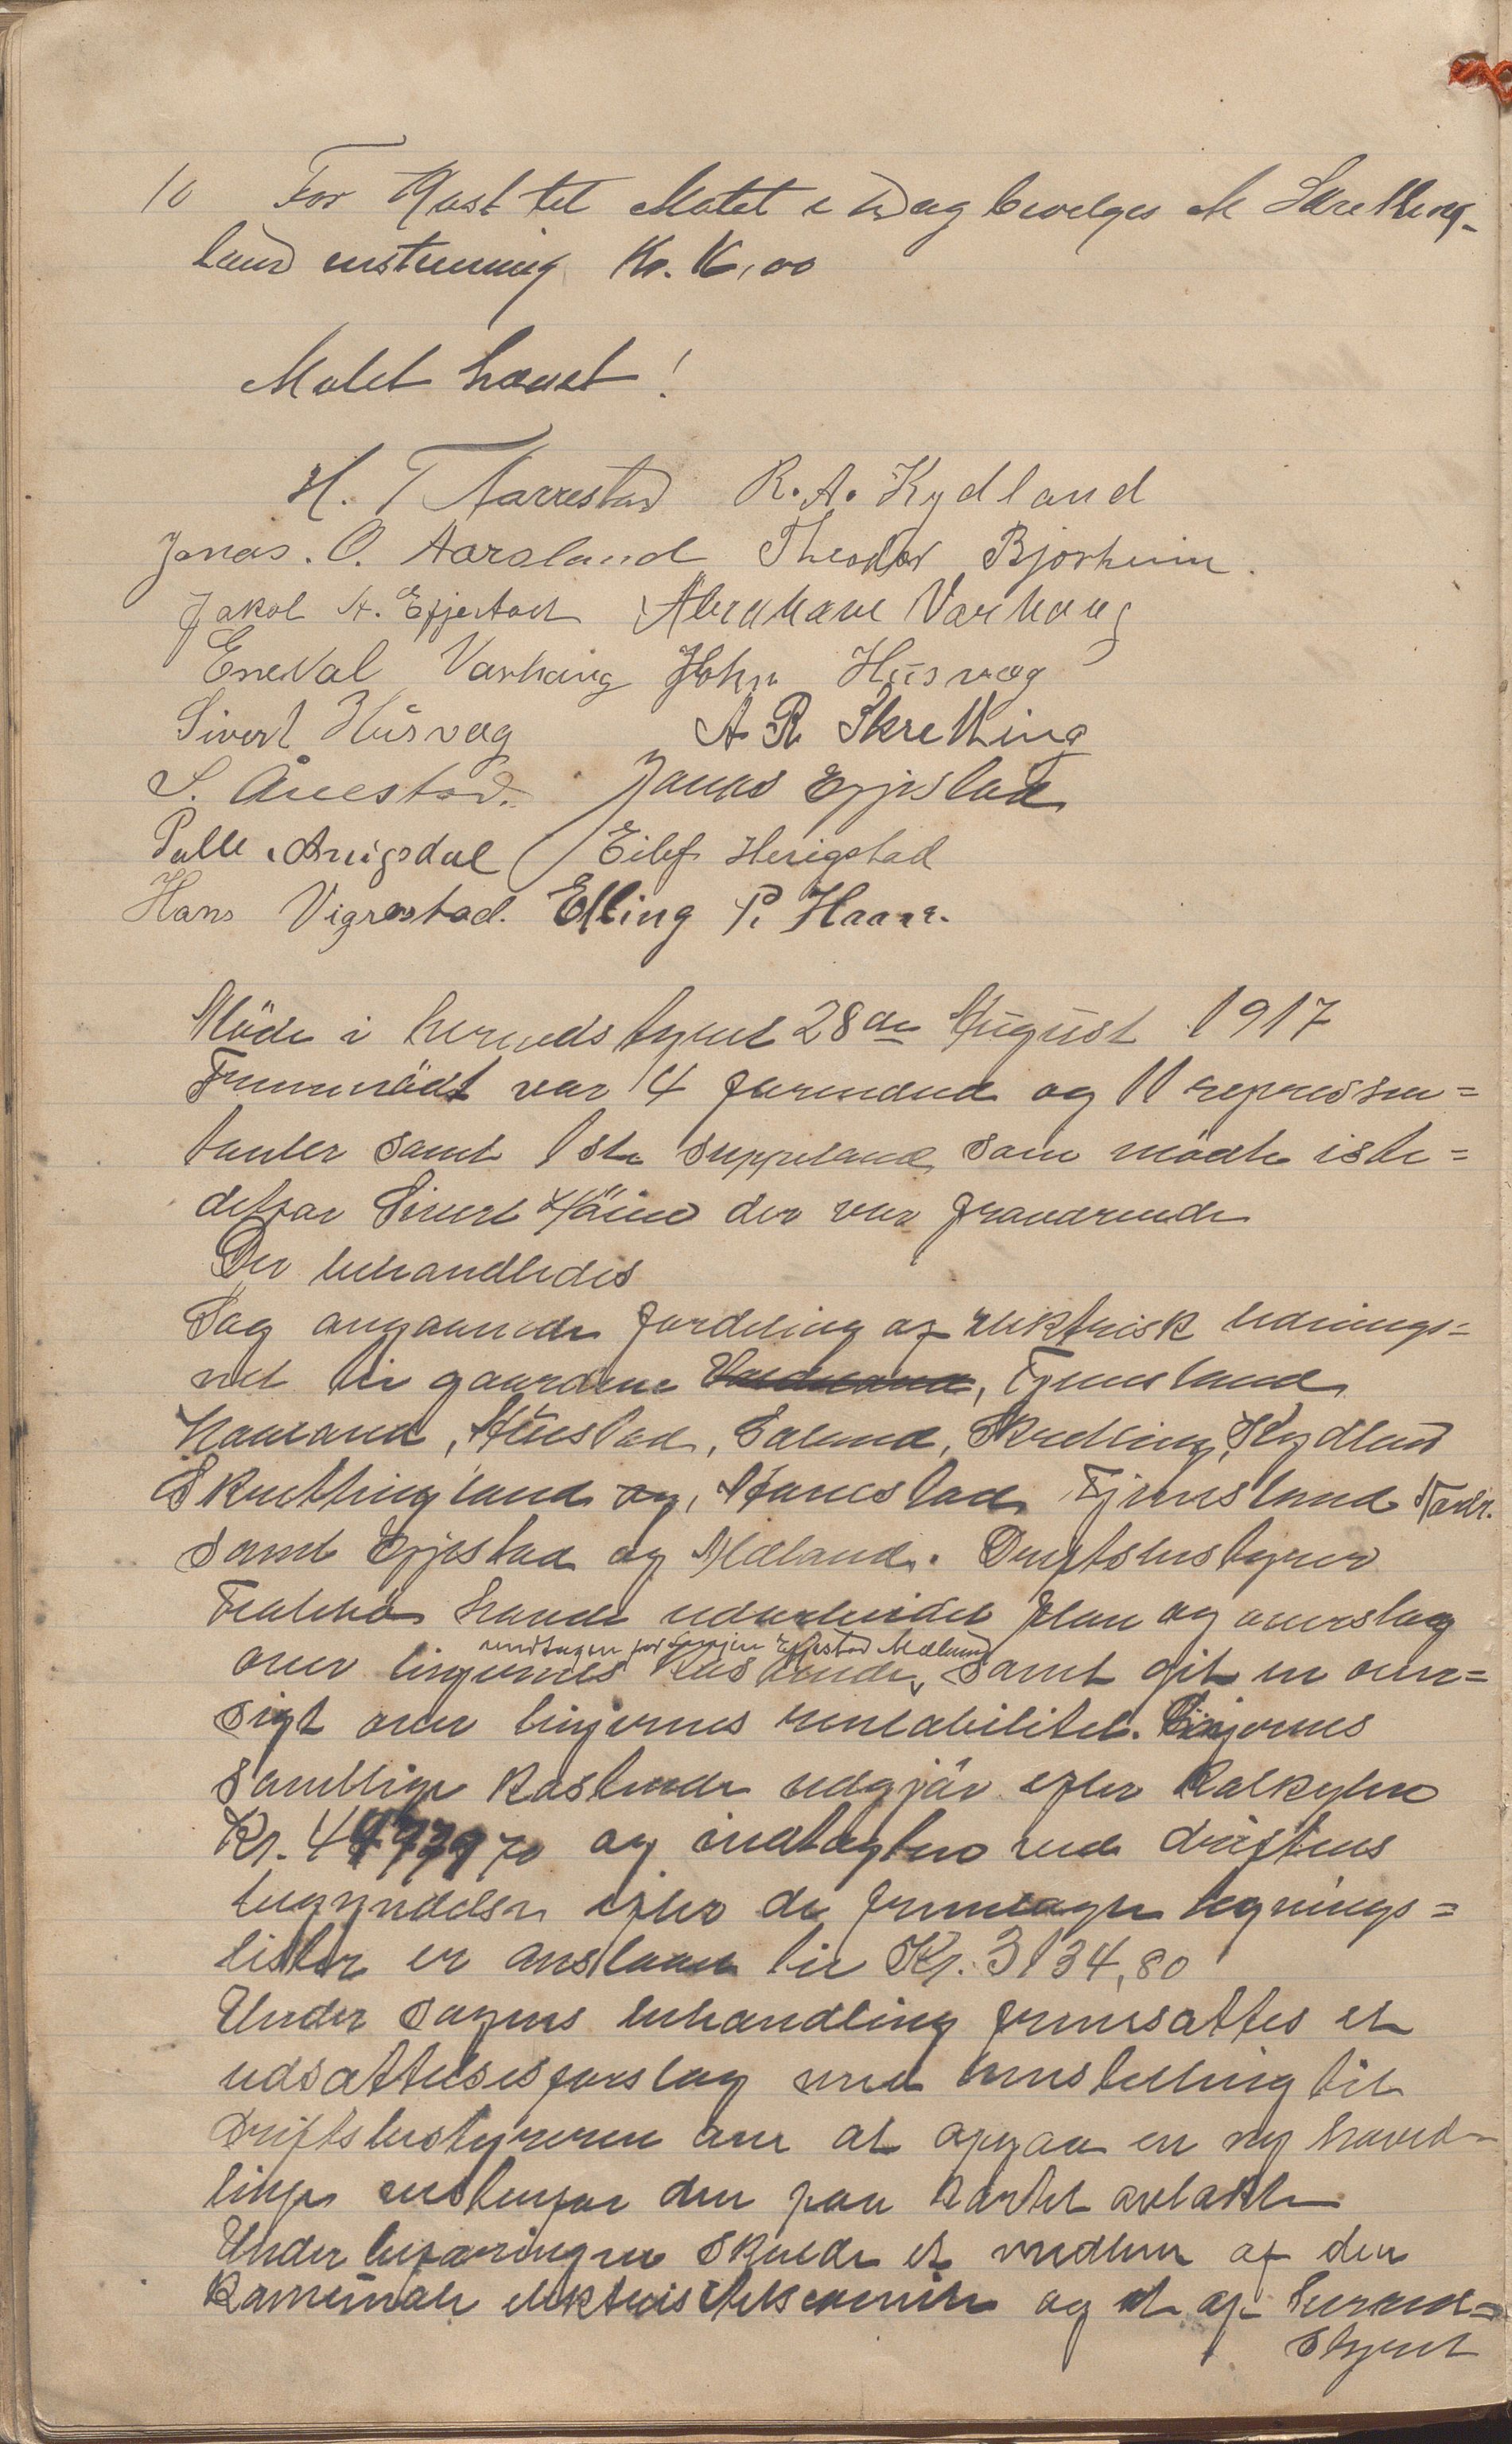 10 For Kost til Møtet i Dag bevelges M Skretting-
land enstemmig Kr.
Møtet hævet!
H. T Aarrestad R. A. Kydland
Jonas. O. Aarsland Theodor Bjorheim.
Jakob A. Epjestad Abraham Varhaug
Eneval Varhaug John Husvæg
Sivert Husvæg A R Skretting
S. Ånestad. Jonas Epjestad
Palle Anigsdal Eilef Herigstad
Hans Vigrestad. Elling P. Haar.
Möde i herredstyret 28de August 1917
Fremmödt var 4 formænd og 11 represen=
tanter samt 1ste suppleant som mödte iste=
detfor Sivert der var fraværende
Der behandledes
Sag angaaende fordeling af elektrisk lednings=
net til gaardene Tjemsland
Haarand, Aanestad, Saland, Skretting, Kydland
Skrettingland og, Aanestad Tjemsland Nedr.
samt Epjestad og Mæland. Driftsbestyrer
havde udarbeidet plan og overslag
undtagen for Linjen Epjestad Mæland
over linjernes kostende, samt git en over=
sigt over linjernes rentabilitet. Linjernes
samtlige kostende udgjör efter kalkylen
Kr. og indtægten ved driftens
begyndelse efter de fremlagte tegnings=
lister er anslaaet til Kr. 3134,80
Under sagens behandling fremsattes et
udsættelsesforslag med henstilling til
driftsbestyreren om at opgaa en ny hoved=
linje östenfor den paa kartet avlakte
Under befaringen skulde et medlem af den
kommunale elektrisitetskomite og et af herred=
styret